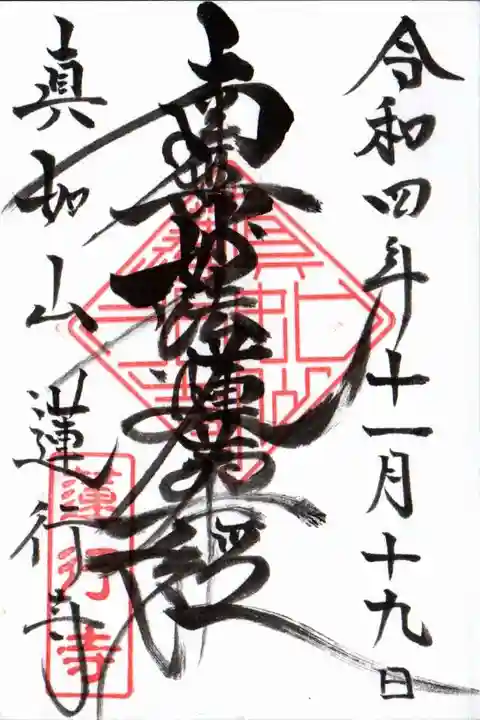 令和四年十一月十九日
南無妙法蓮華経
真如山 蓮行寺
真如山蓮行寺
蓮行寺